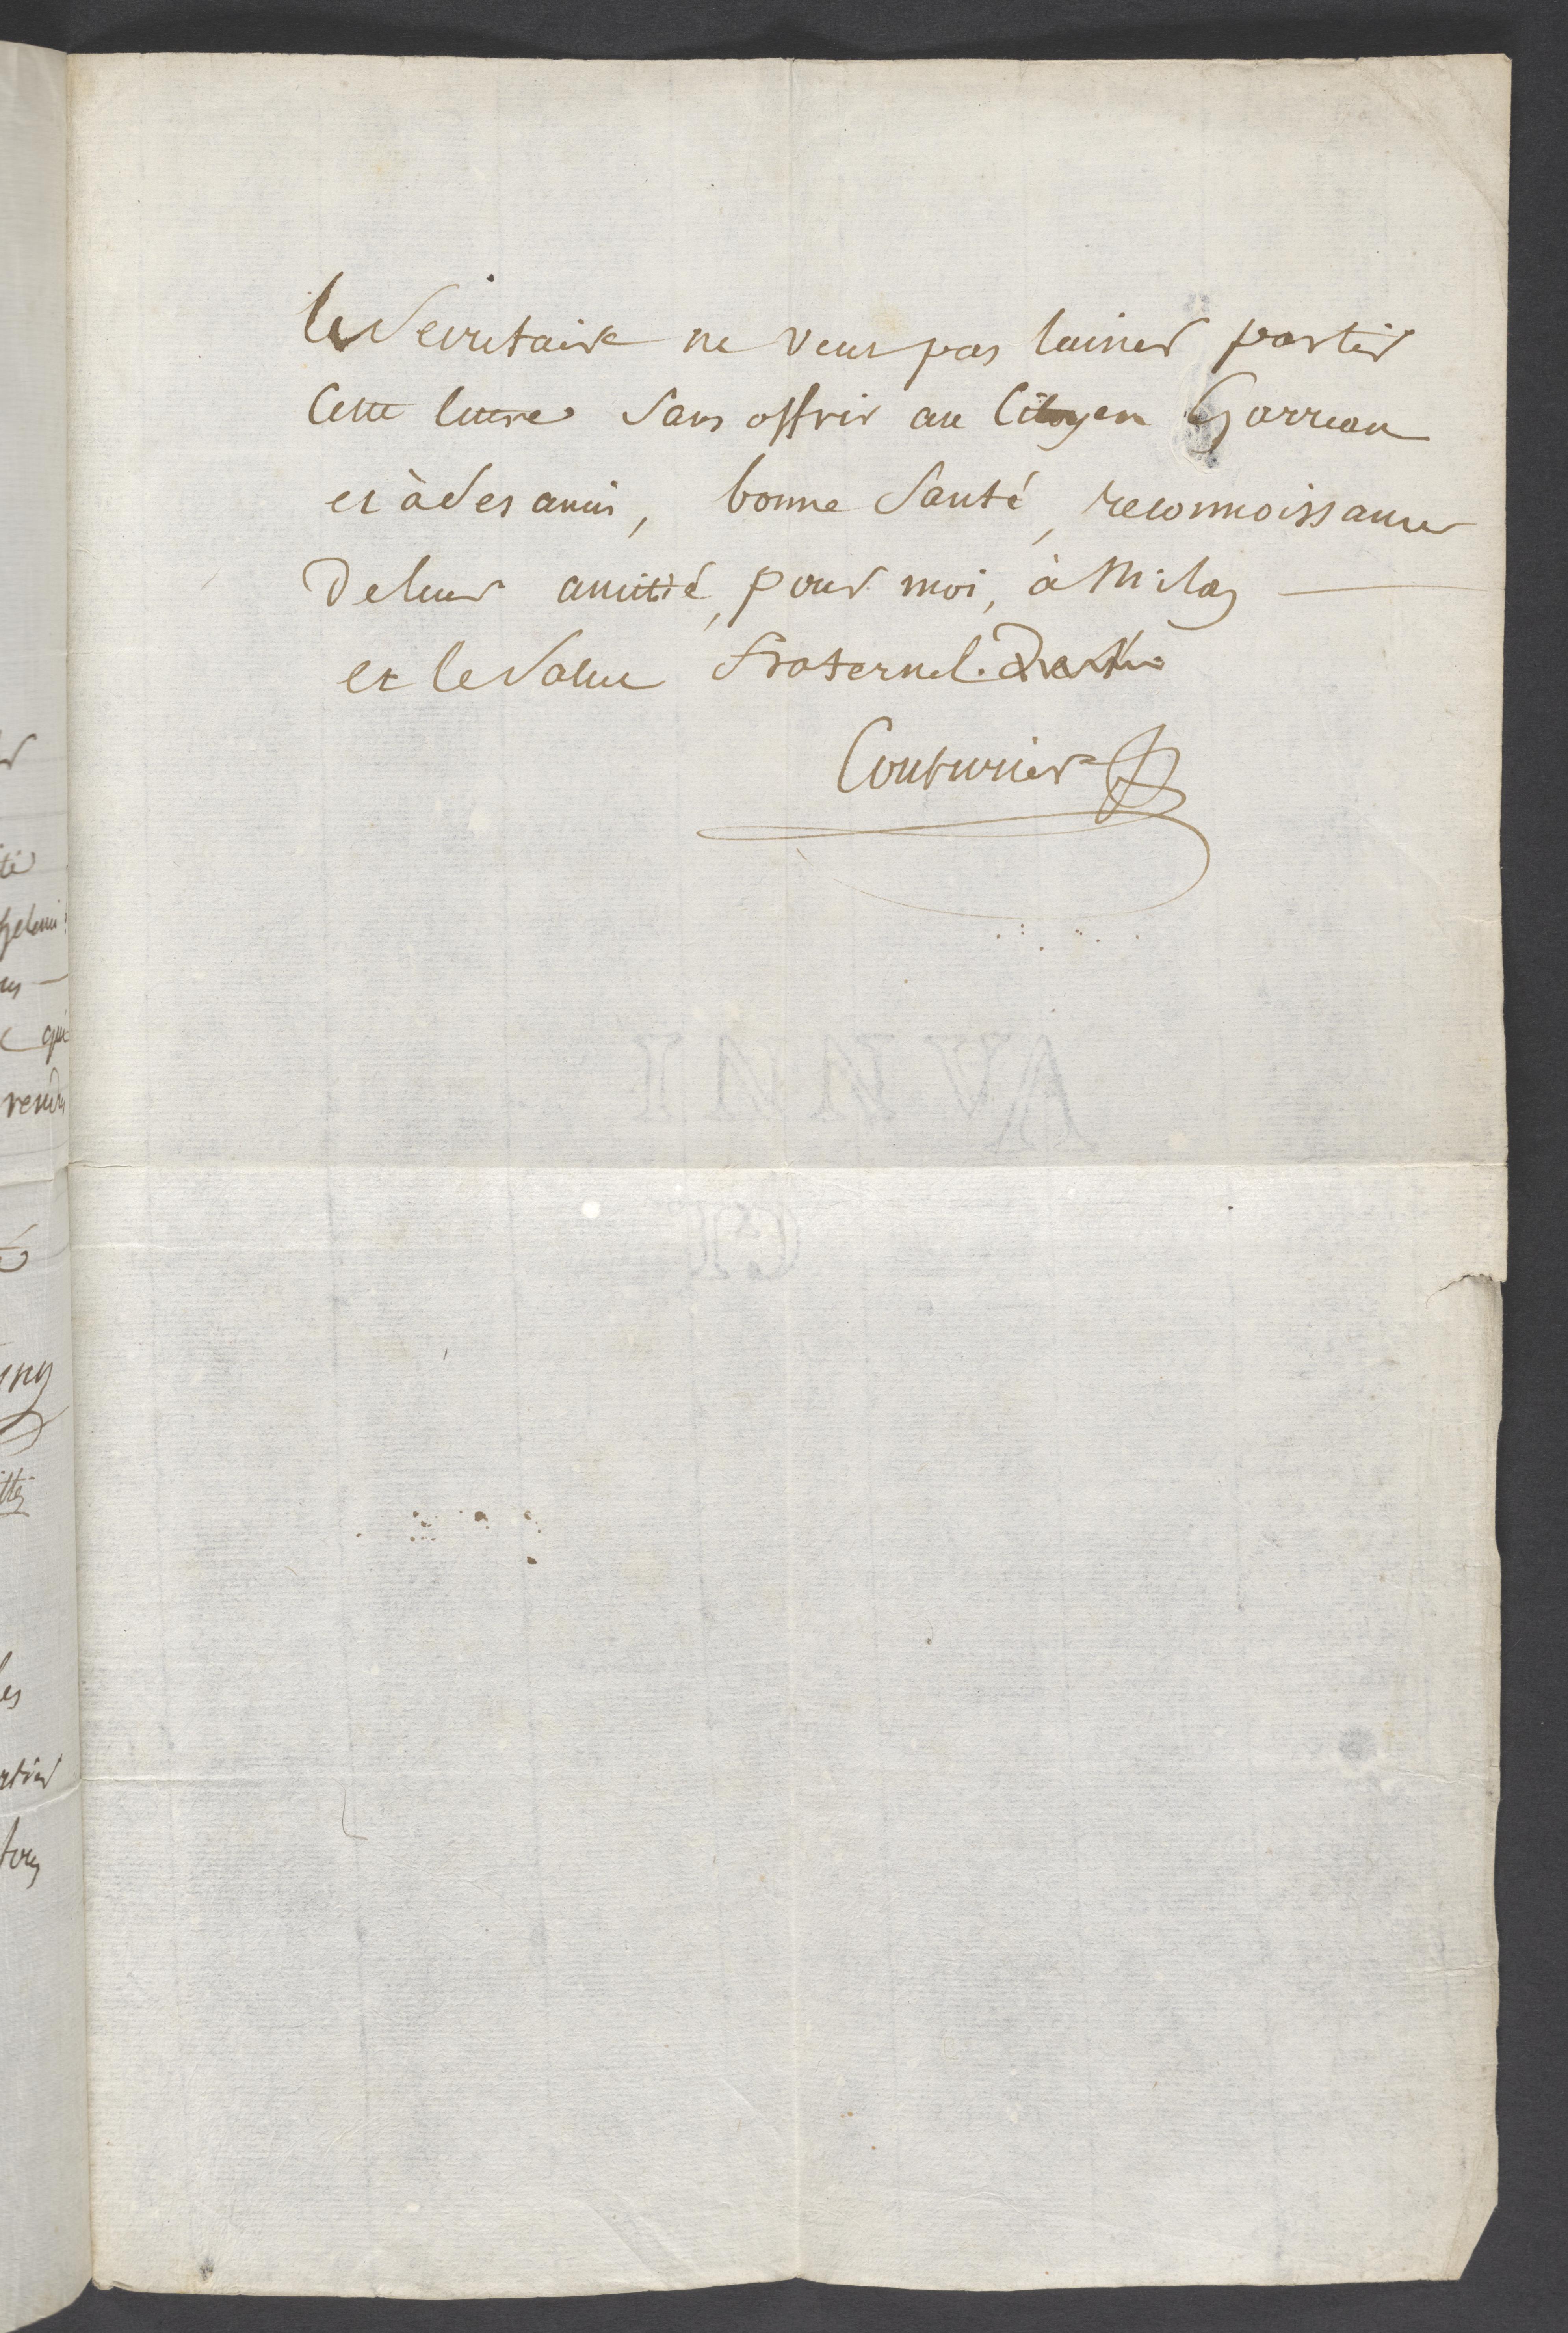 le Secretaire ne veut pas laisser partir
Cette lettre sans offrir au Citoyen Garreau
et à ses amis, bonne Santé, reconnoissance
De leur amitié, pour moi, à Milan
et le Salut fraternel.
Couturier